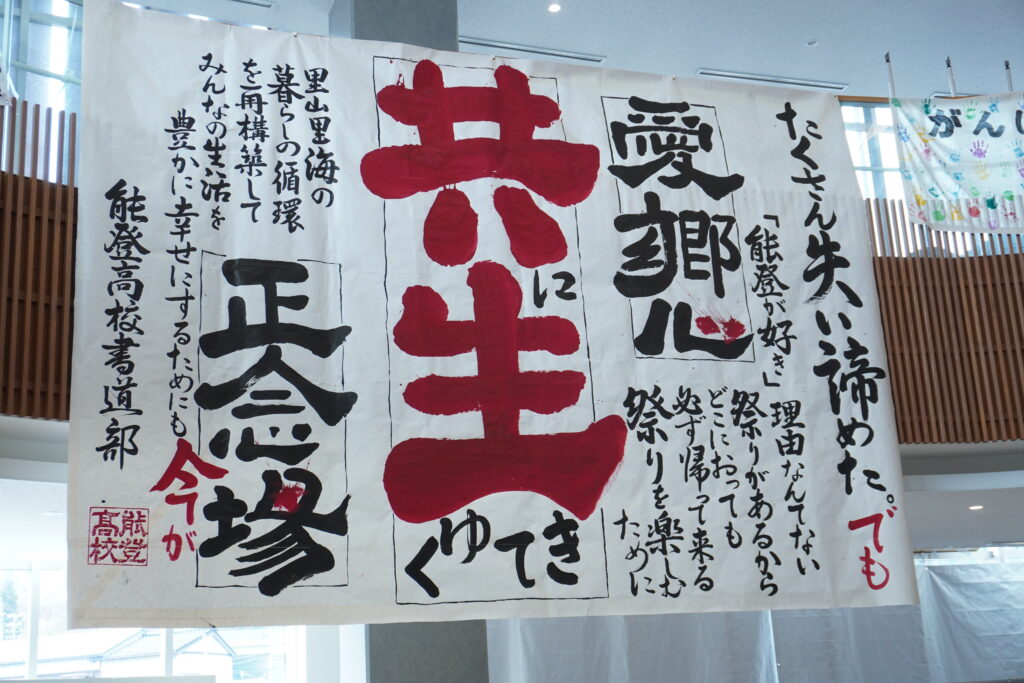 たくさん失い諦めた。でも
「能登が好き」理由なんてない
祭りがあるから
どこにおっても
必ず帰って来る
祭りを楽しむ
ために
愛郷心
共に生きてゆく
里山里海の
暮らしの循環
を再構築して
みんなの生活を
豊かに幸せにするためにも
今が
正念場
能登高校書道部
能登
高校
がん